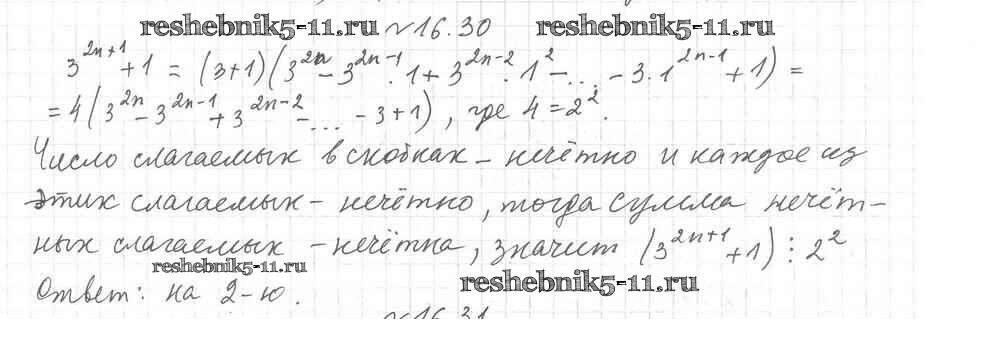 reshebnik5-11.ru №16.30 reshebnik5-11.ru
3^{2n+1}+1 = (3+1)(3^{2n}-3^{2n-1}·1+3^{2n-2}·1^2-...-3·1^{2n-1}+1) =
=4(3^{2n}-3^{2n-1}+3^{2n-2}-...-3+1), где 4=2^2.
Число слагаемых в скобках - нечётно и каждое из
этих слагаемых - нечётно, тогда сумма нечёт-
ных слагаемых - нечётна, значит (3^{2n+1}+1)⋮2^2
reshebnik5-11.ru
Ответ: на 2-ю.
reshebnik5-11.ru
№16.31